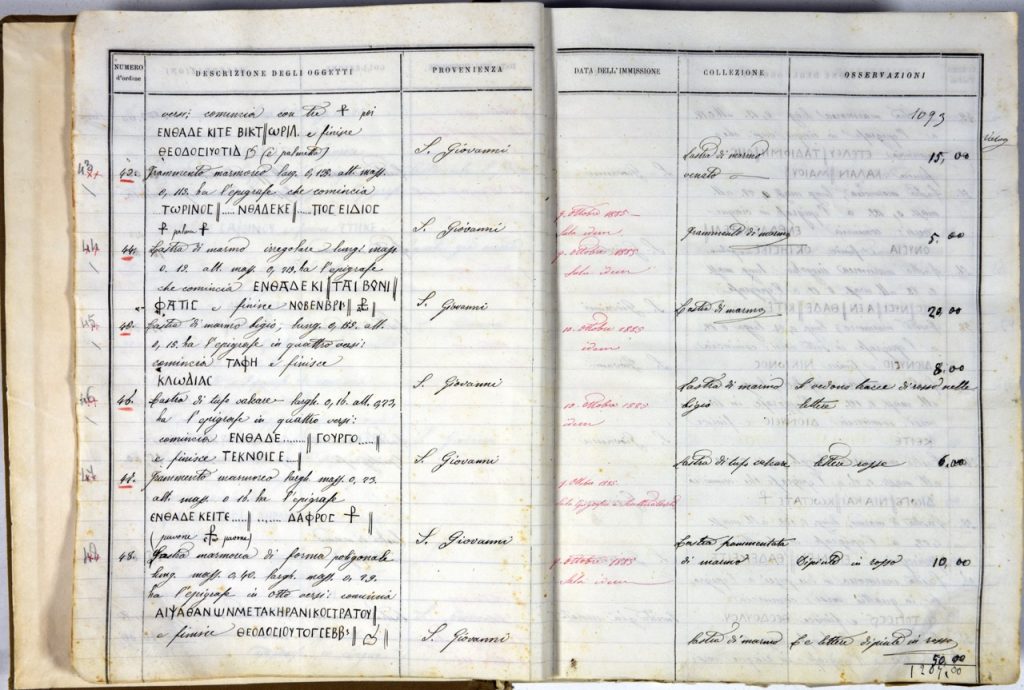 NUMERO d'ordine
DESCRIZIONE DEGLI OGGETTI
PROVENIENZA
DATA DELL'IMMISSIONE
COLLEZIONE
OSSERVAZIONI
1093
versi: comincia con tre ⳨ poi
ΕΝΘΑΔΕ ΚΙΤΕ ΒΙΚΤ||ΩΡΙΛ. e finisce
ΘΕΟΔΟСΙΥΟΤΙΔ (è palmetta)
S. Giovanni
Lastra di marmo
venato
15,00
43
Frammento marmoreo larg. 0,128. alt. mass.
0,113. ha l'epigrafe che comincia
...ΤΩΡΙΝΟС||.....ΝΘΑΔΕΚΕ||.....ΠΟС ΕΙΔΙΟС
⳨ palma ⳨
S. Giovanni
9. Ottobre 1885
Sala idem
Frammento di marmo
5.00
44
44.
Lastra di marmo irregolare lungh. mass.
0.19. alt. mass. 0,213. ha l'epigrafe
che comincia ΕΝΘΑΔΕ ΚΙ||ΤΑΙ ΒΟΝΙ||
ΦΑΤΙС e finisce ΝΟΒΕΝΒΡΙ||⳨||
S. Giovanni
9. Ottobre 1885
Sala idem
Lastra di marmo
20,00
45
Lastra di marmo bigio; lung. 0,155. alt.
0,15. ha l'epigrafe in quattro versi:
comincia ΤΑΦΗ e finisce
ΚΛΩΔΙΑС
S. Giovanni
10. Ottobre 1885
idem
Lastra di marmo
bigio
Si vedono tracce di rosso nelle
lettere
8.00
46
46.
Lastra di tufo calcare largh. 0,16. alt. 0,23,
ha l'epigrafe in quattro versi:
comincia ΕΝΘΑΔΕ.......||ΓΟΥΡΓΟ.....||
e finisce ΤΕΚΝΟΙСΕ...||
S. Giovanni
10. Ottobre 1885
idem
Lastra di tufo calcare
lettere rosse
6,00
Frammento marmoreo largh. mass. 0,23.
alt. mass. 0.16. ha l'epigrafe
ΕΝΘΑΔΕ ΚΕΙΤΕ.....||.......ΔΑΦΡΟС ⳨||
(pavone ⳨ pavone)
S. Giovanni
Lastra frammentata
di marmo
Dipinta in rosso
10,00
48.
Lastra marmorea di forma poligonale
lung. mass. 0,40. largh. mass. 0,29.
ha l'epigrafe in otto versi: comincia
ΑΙΨΑΘΑΝΩΝΜΕΤΑΚΗΡΑΝΙΚΟСΤΡΑΤΟΥ||
e finisce ΘΕΟΔΟСΙΟΥΤΟΓСΕΒΒς||
S. Giovanni
9. Ottobre 1885
Sala idem
Lastra di marmo
E e lettere dipinte in rosso
50.00